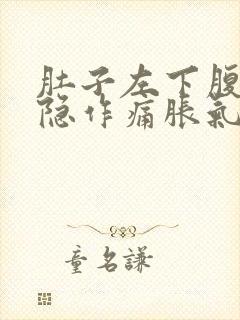 肚子左下腹
隐作痛胀氣
童名謙